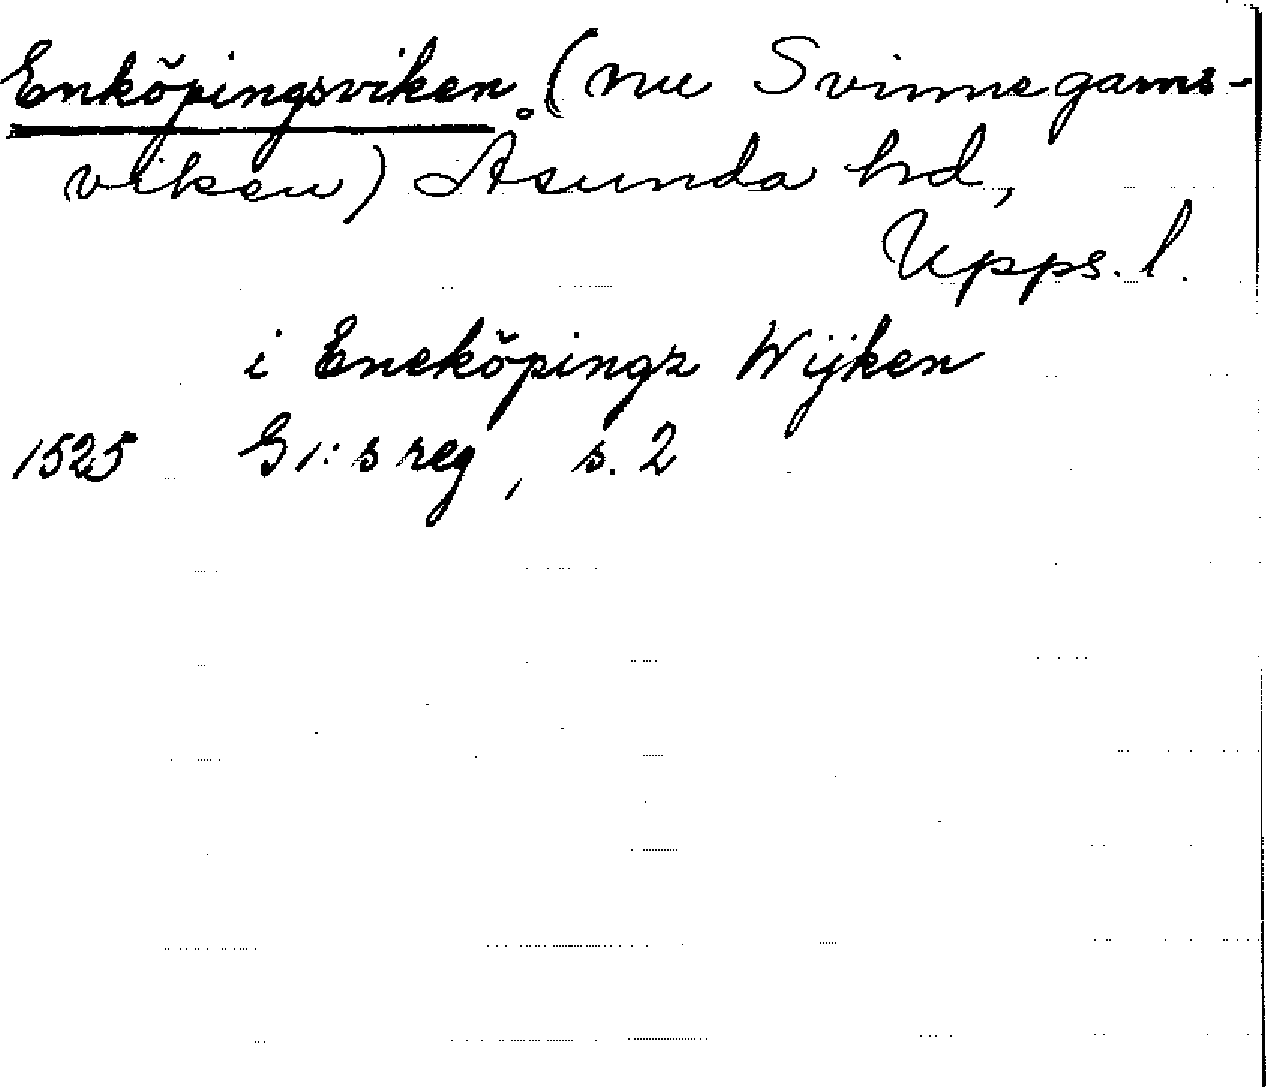 Enköpingsviken (nu Svinnegarns-
viken) Åsunda hd,
Upps. l.
i Eneköpingz Wijken
1525 G I:s reg, s. 2